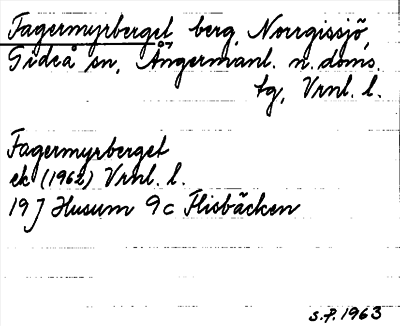 Fagermyrberget, berg, Norrgissjö,
Gideå sn, Ångermanl. n. doms.
tg, Vrnl. l.
Fagermyrberget
ek (1962) Vrnl. l.
19 J Husum 9c Flisbäcken
S.P. 1963